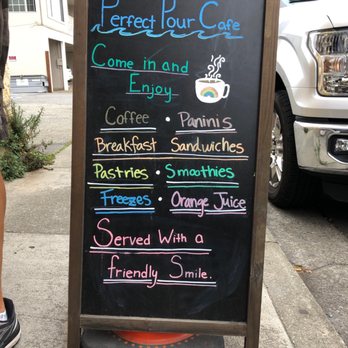 Perfect Pour Cafe
Come in and
Enjoy
Coffee • Paninis
Breakfast Sandwiches
Pastries • Smoothies
Freezes • Orange Juice
Served With a
friendly Smile.